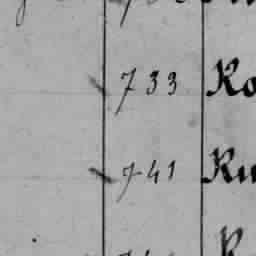 733 Ko
741 Ku